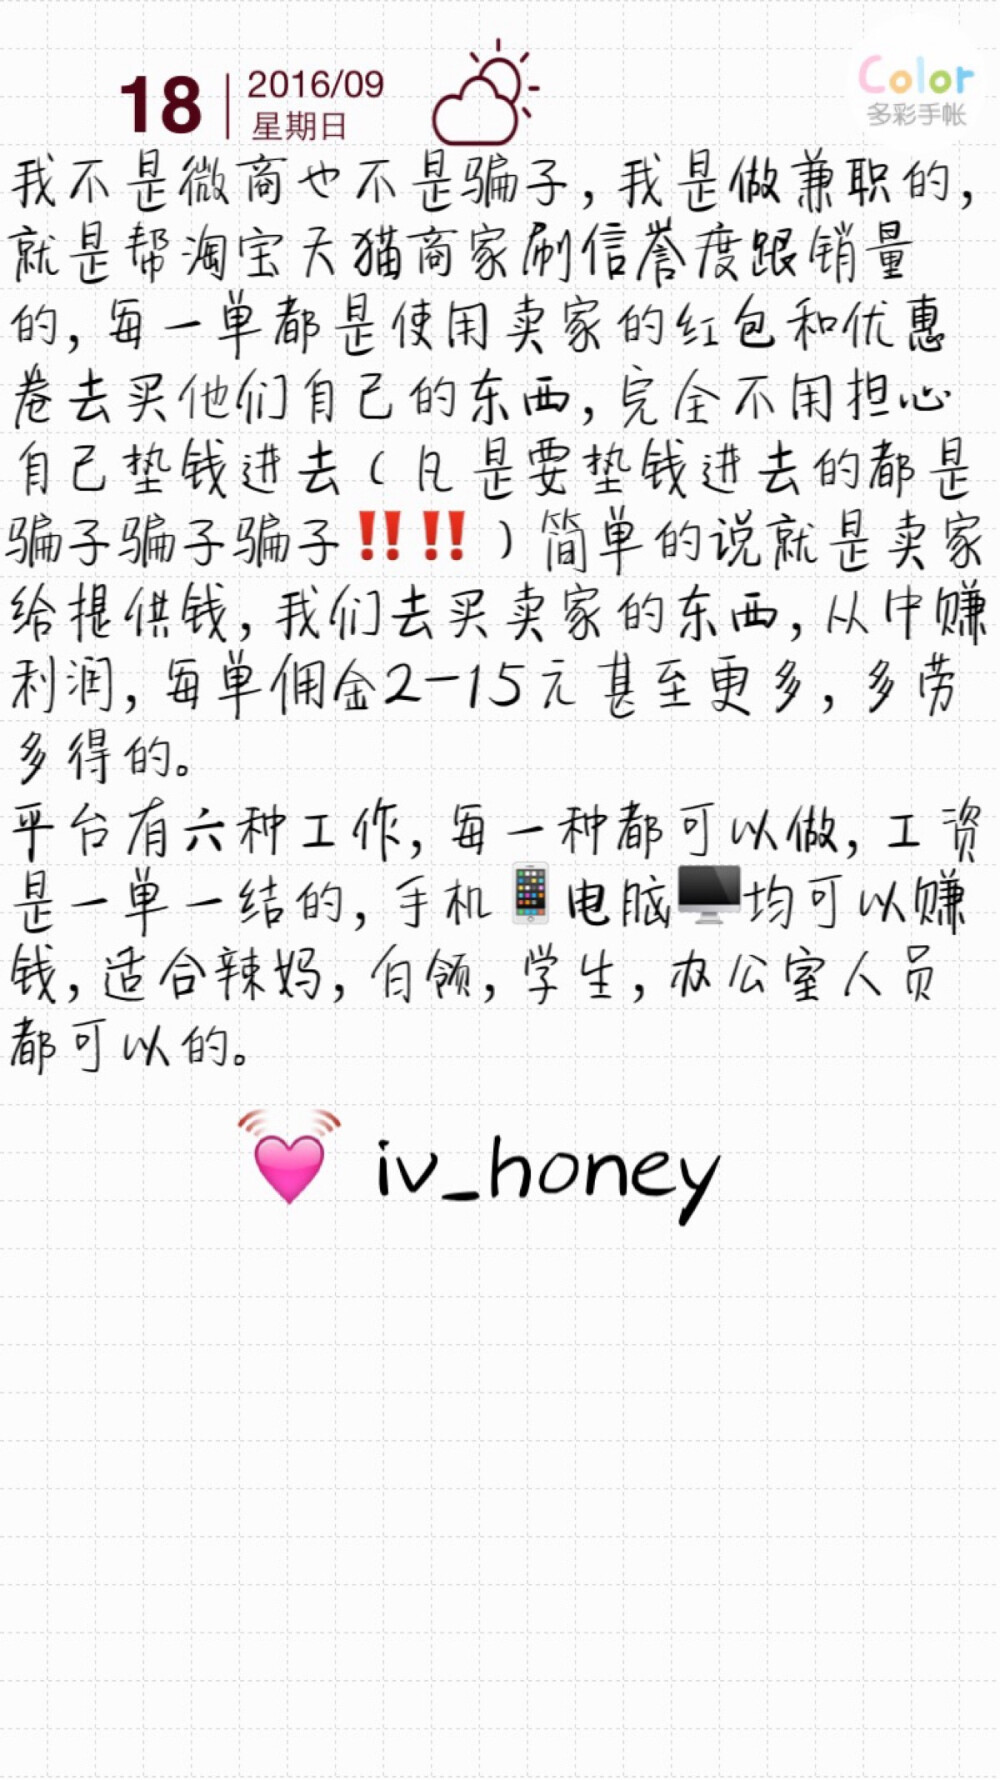 18
2016/09
星期日
Color
多彩手帐
我不是微商也不是骗子，我是做兼职的，
就是帮淘宝天猫商家刷信誉度跟销量
的，每一单都是使用卖家的红包和优惠
卷去买他们自己的东西，完全不用担心
自己垫钱进去（凡是要垫钱进去的都是
骗子骗子骗子‼️‼️）简单的说就是卖家
给提供钱，我们去买卖家的东西，从中赚
利润，每单佣金2-15元甚至更多，多劳
多得的。
平台有六种工作，每一种都可以做，工资
是一单一结的，手机📱电脑🖥均可以赚
钱，适合辣妈，白领，学生，办公室人员
都可以的。
💓 iv_honey